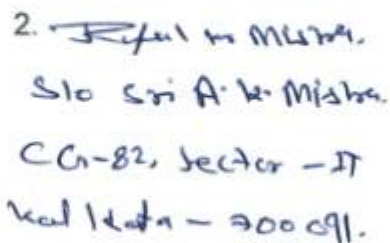 2. Mistra.
S/o Sri A. K. Mishra.
CG-82, Sector - II
Kolkata - 700 091.